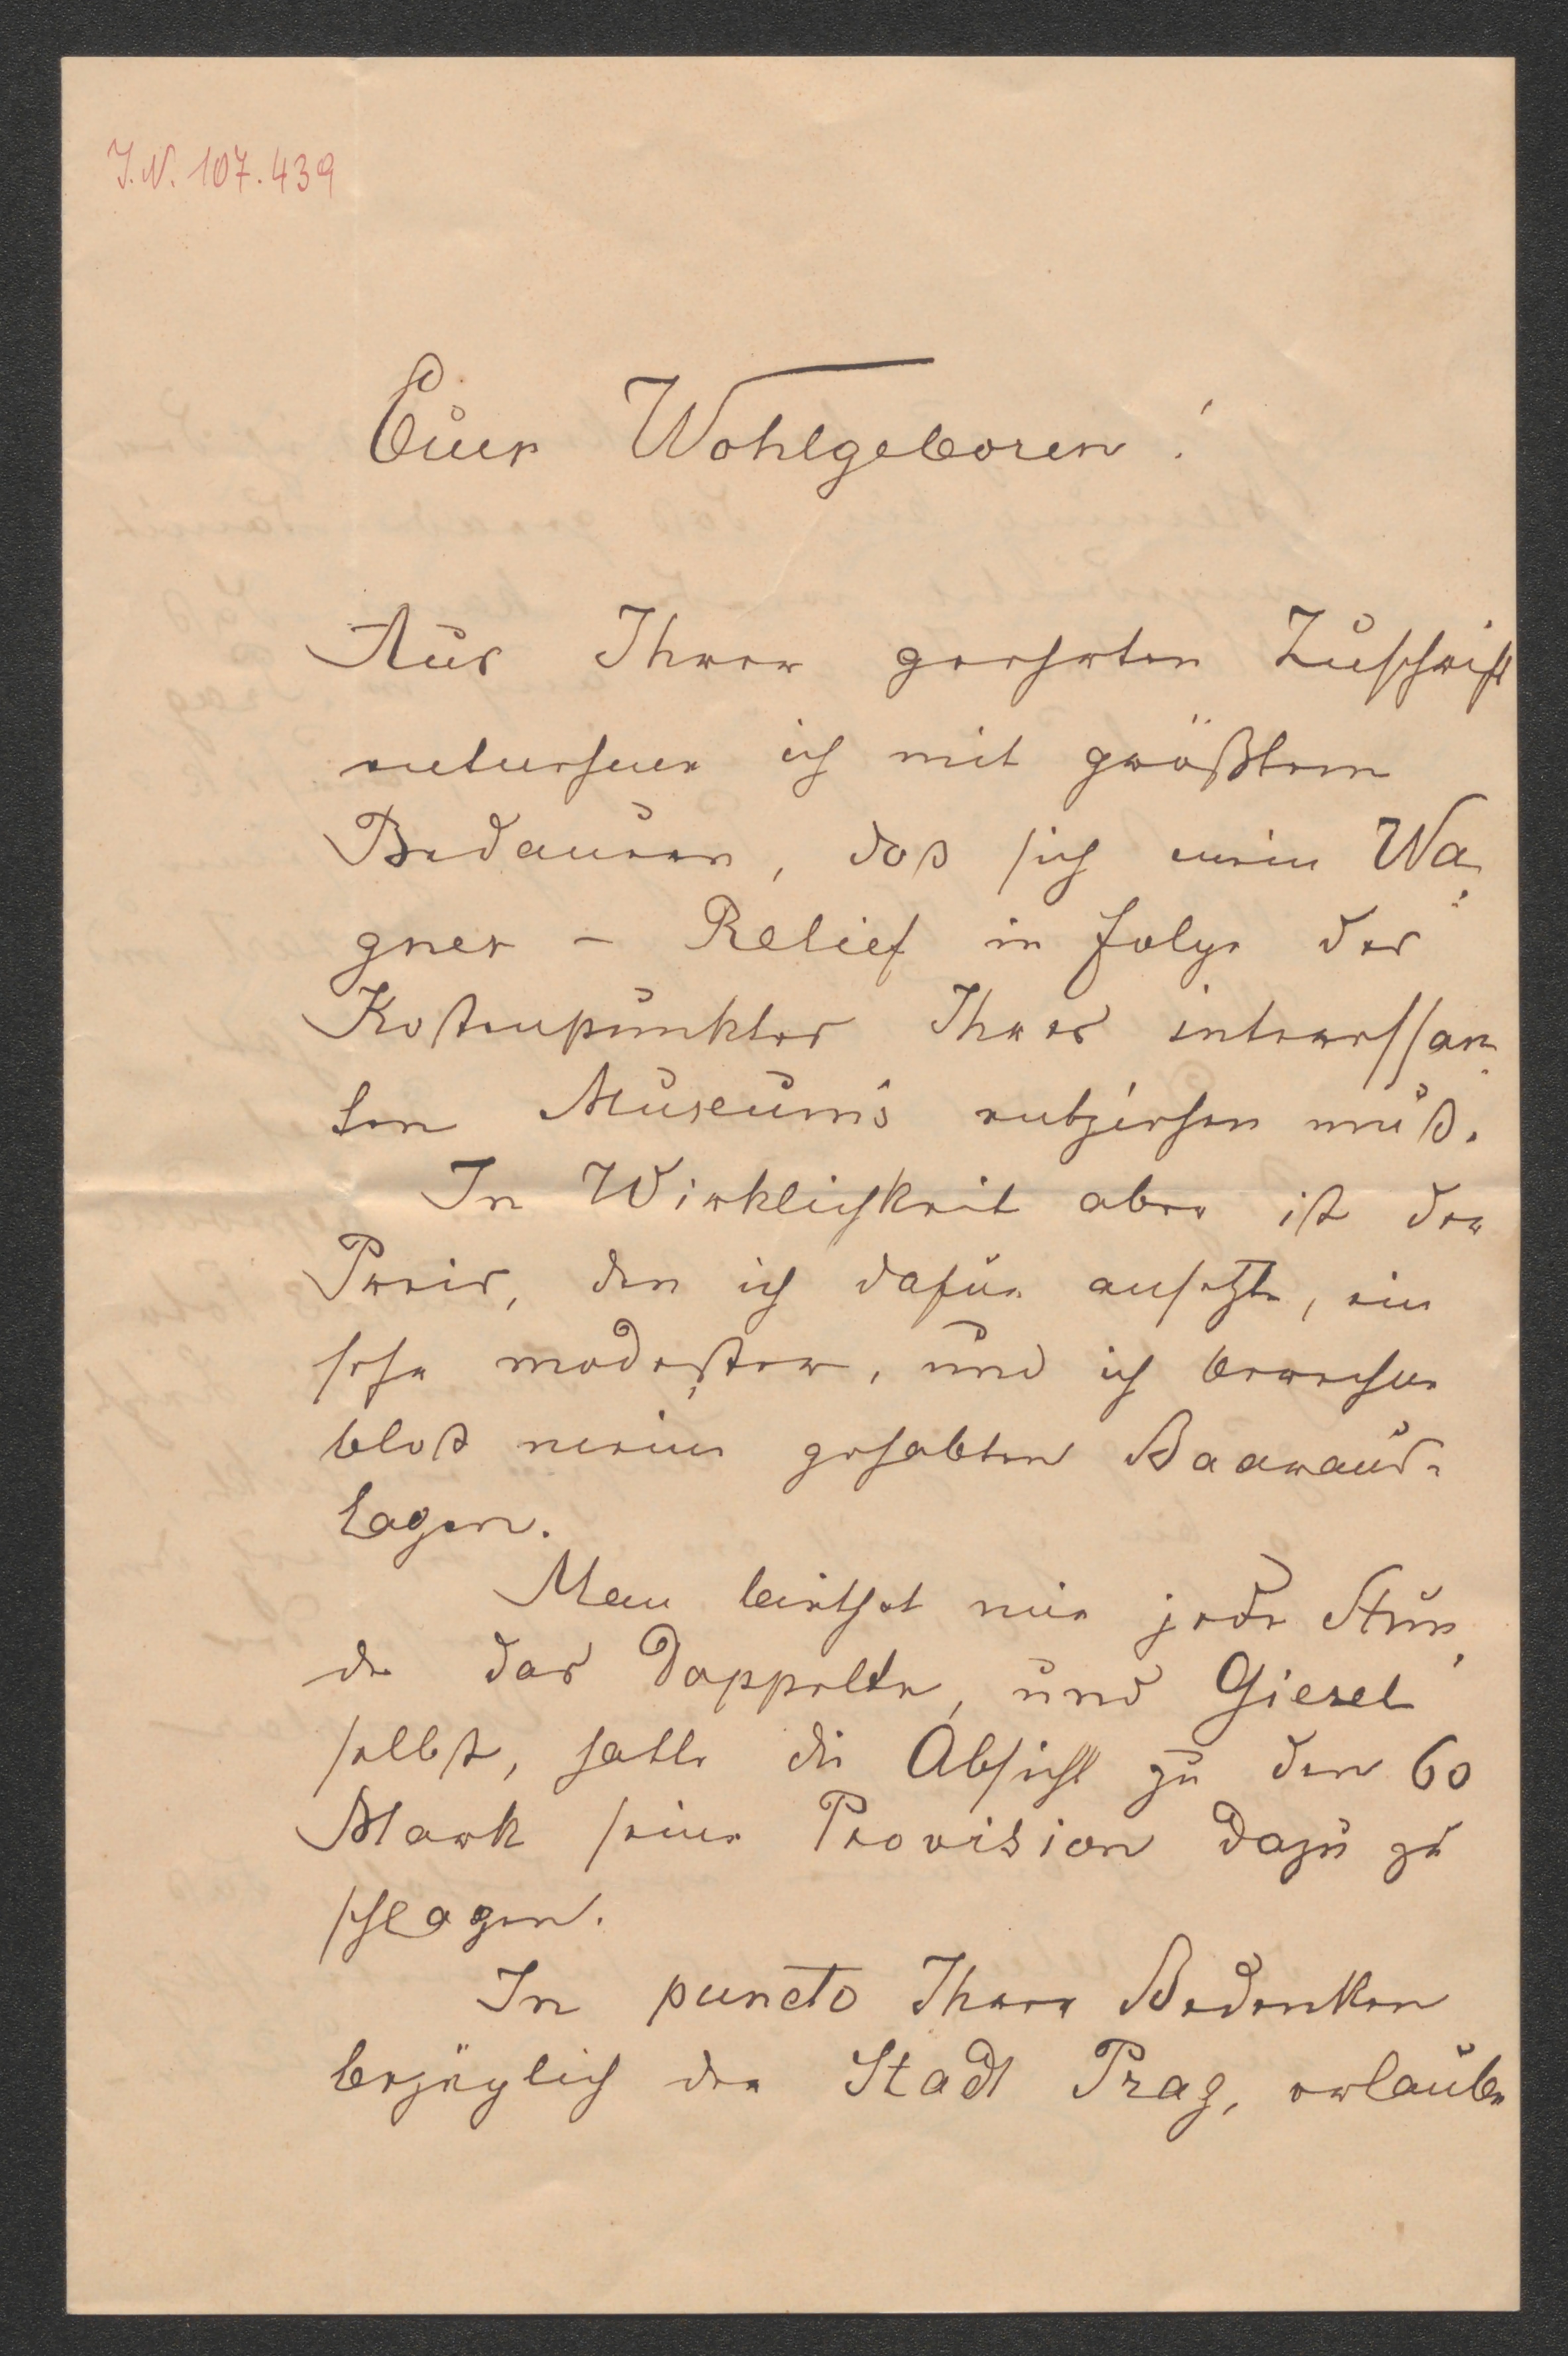 J.N. 107.439
Euer Wohlgeboren!
Aus Ihrer geehrten Zuschrift
entnehme ich mit größtem
Bedauern, daß sich mein Wa-
gner - Relief in Folge des
Kostenpunktes Ihres interessan-
ten Museum's entziehen muß.
In Wirklichkeit aber ist der
Preis, den ich dafür ansetzte, ein
sehr modester, und ich berechne
bloß meine gehabten Baaraus-
lagen.
Man biethet mir jede Stun-
de das Doppelte, und Giesel
selbst, hatte die Absicht zu den 60
Mark seine Provision dazu zu
schlagen.
In puncto Ihrer Bedenken
bezüglich der Stadt Prag, erlaube